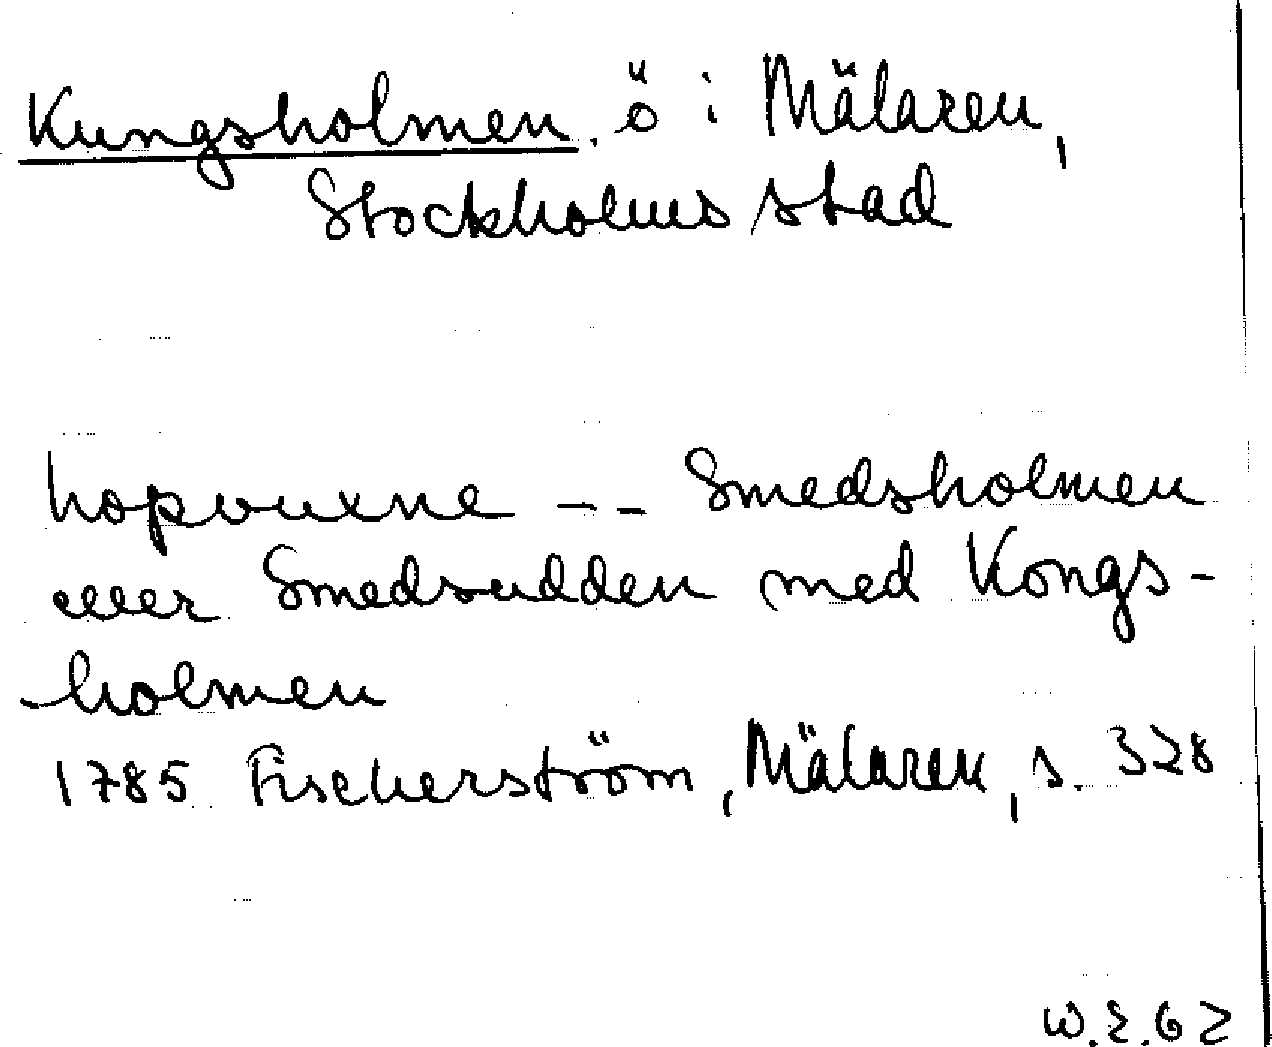 Kungsholmen. ö i Mälaren,
Stockholms stad
hopvuxne -- Smedsholmen
eller Smedsudden med Kongs-
holmen
1785 Fischerström, Mälaren, s. 328
W.E.62